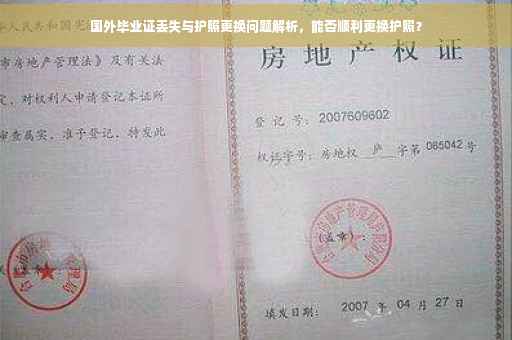 国外毕业证丢失与护照更换问题解析，能否顺利更换护照？
人民共和国宪
市房地产管理法》及有关法
定，对权利人申请登记本证所
审查属实，准予登记，特发此
房地产权证
登记号：2007609602
权证字号：房地权 庐 字第 065042 号
（盖章）：
填发日期： 2007 年 04 月 27 日